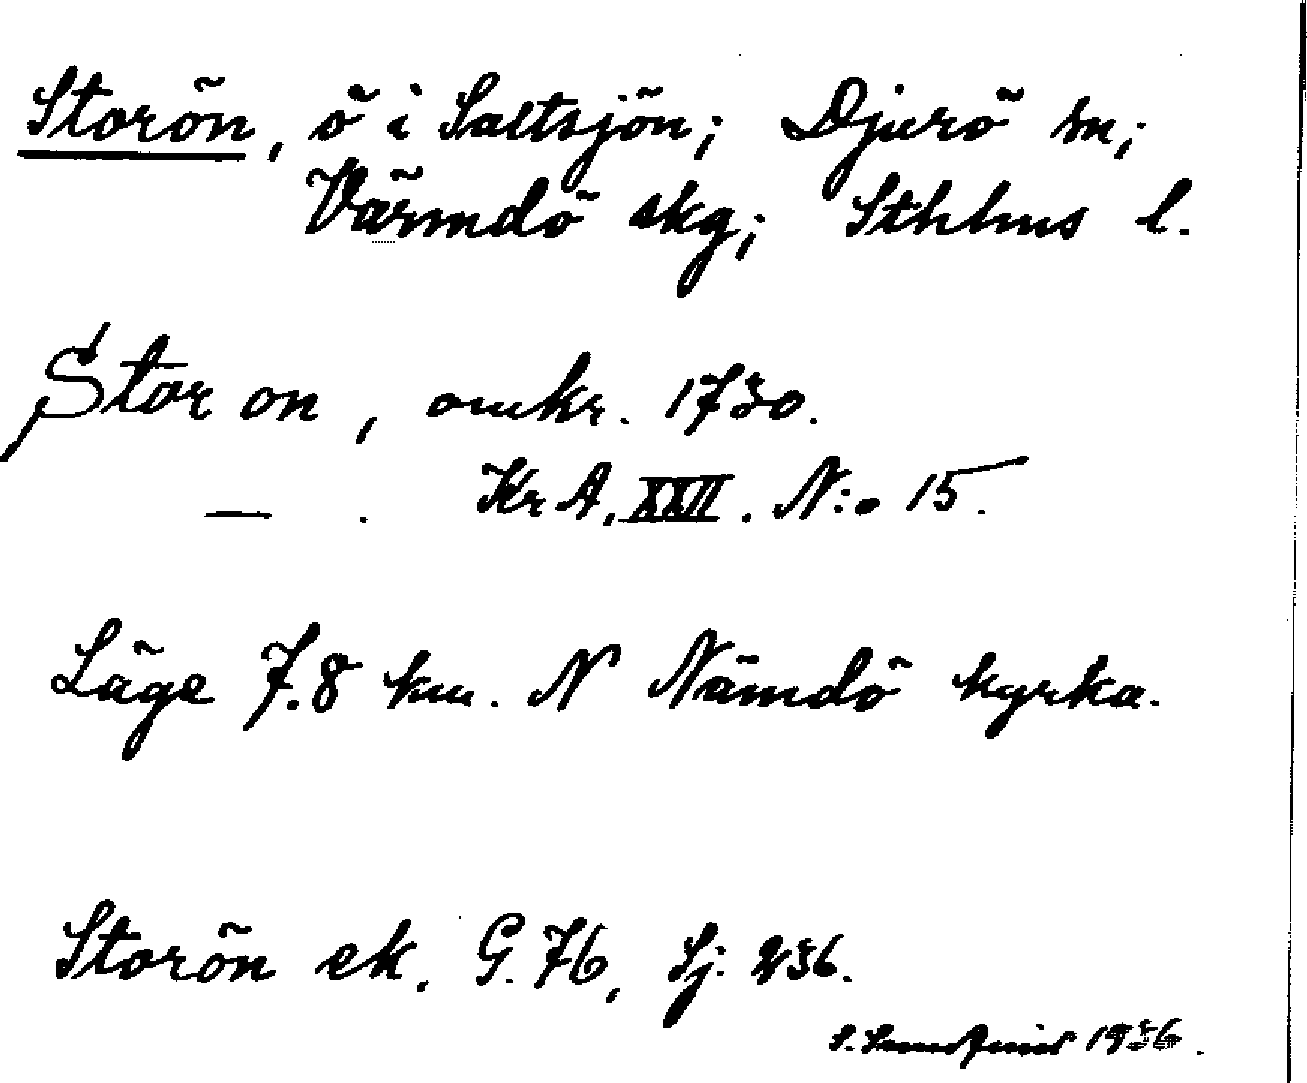 Storön, ö i Saltsjön; Djurö sn;
Värmdö skg; Sthlms l.
Stor on, omkr. 1730.
— . KrA, XXII. N:o 15.
Läge 7.8 km. N Nämdö kyrka.
Storön ek. G. 76, Sj. 236.
S. 1936.